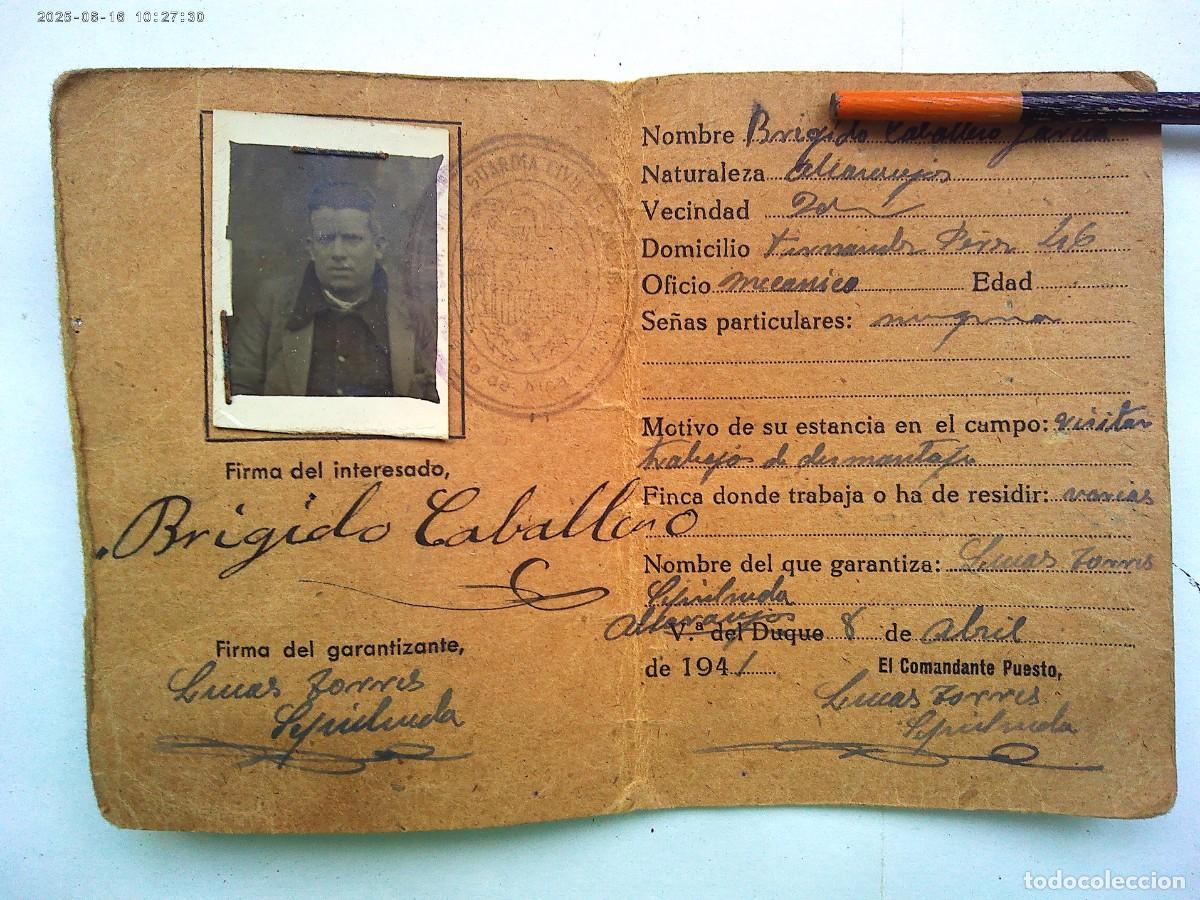 2025-08-16 10:27:30
GUARDIA CIVIL
Firma del interesado,
Brigido Caballero
Firma del garantizante,
Lucas Torres
Sepulveda
Nombre Brigido Caballero Garcia
Naturaleza
Vecindad
Domicilio Fernando 46
Oficio mecanico Edad
Señas particulares: ninguna
Motivo de su estancia en el campo: visitar
trabajos de desmontaje
Finca donde trabaja o ha de residir: varias
Nombre del que garantiza: Lucas Torres
Sepulveda
V.ª del Duque 8 de abril
de 1941
El Comandante Puesto,
Lucas Torres
Sepulveda
todocoleccion